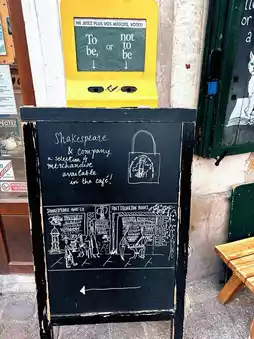 NE JETEZ PLUS VOS MÉGOTS, VOTEZ!
To
be,
or
not
to
be
Shakespeare
& Company
a selection of
merchandise
available
in the café!
SHAKESPEARE AND CO